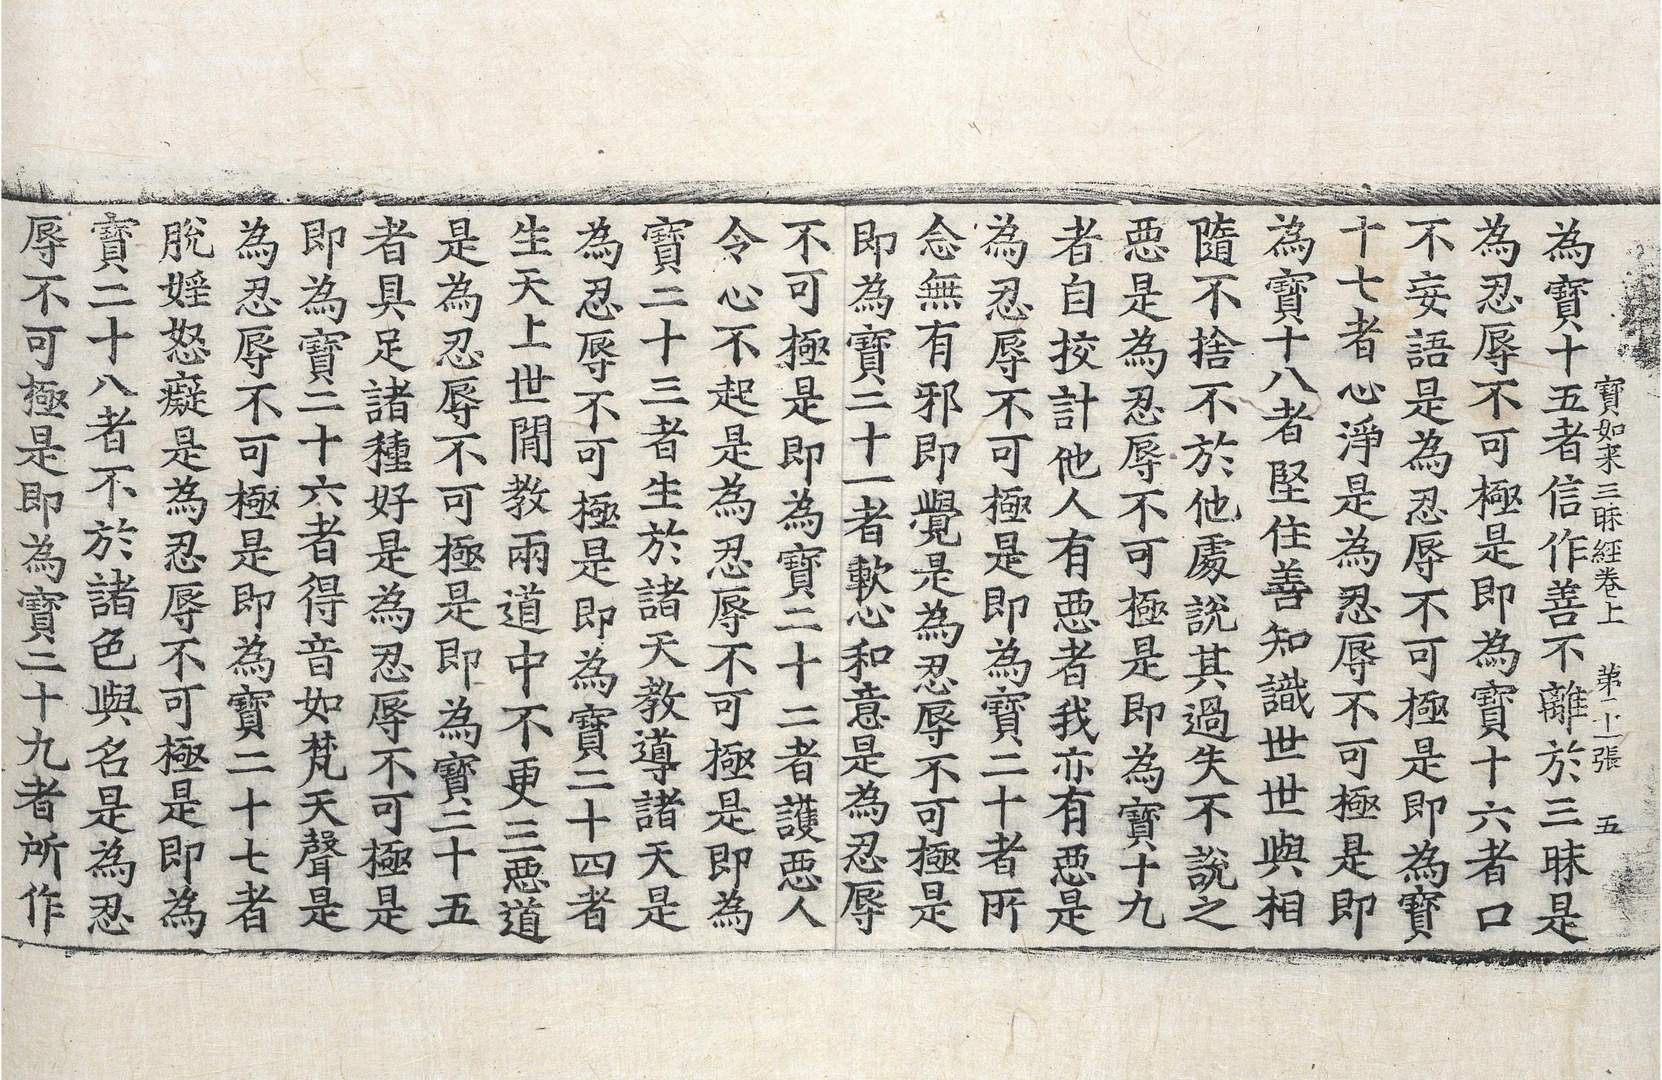 寶如来三昧經卷上　第二十一張　五
為寶十五者信作善不離於三昧是
為忍辱不可極是即為寶十六者口
不妄語是為忍辱不可極是即為寶
十七者心淨是為忍辱不可極是即
為寶十八者堅住善知識世世與相
隨不捨不於他處說其過失不說之
惡是為忍辱不可極是即為寶十九
者自挍計他人有惡者我亦有惡是
為忍辱不可極是即為寶二十者所
念無有邪即覺是為忍辱不可極是
即為寶二十一者軟心和意是為忍辱
不可極是即為寶二十二者護惡人
令心不起是為忍辱不可極是即為
寶二十三者生於諸天教導諸天是
為忍辱不可極是即為寶二十四者
生天上世間教兩道中不更三惡道
是為忍辱不可極是即為寶二十五
者具足諸種好是為忍辱不可極是
即為寶二十六者得音如梵天聲是
為忍辱不可極是即為寶二十七者
脫婬怒癡是為忍辱不可極是即為
寶二十八者不於諸色與名是為忍
辱不可極是即為寶二十九者所作